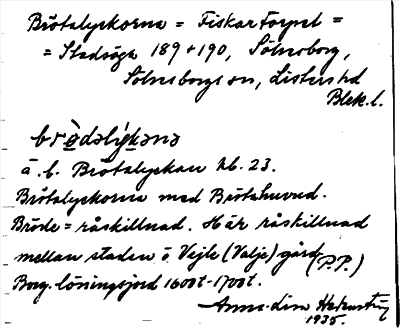 Brötalyckorna = Fiskartorpet =
= Stadsäga 189 + 190, Sölvesborg,
Sölvesborgs sn, Listers hd
Blek. l.
brø̀dəlýkənə
ä. b. Brötalyckan kb. 23.
Brötalyckorna med Brötahuvud.
Bröde = råskillnad. Här råskillnad
mellan staden o. Vejle (Valje) gård
(P.P.)
Borg. löningsjord 1600t - 1700t.
Anna-Lisa
1935.